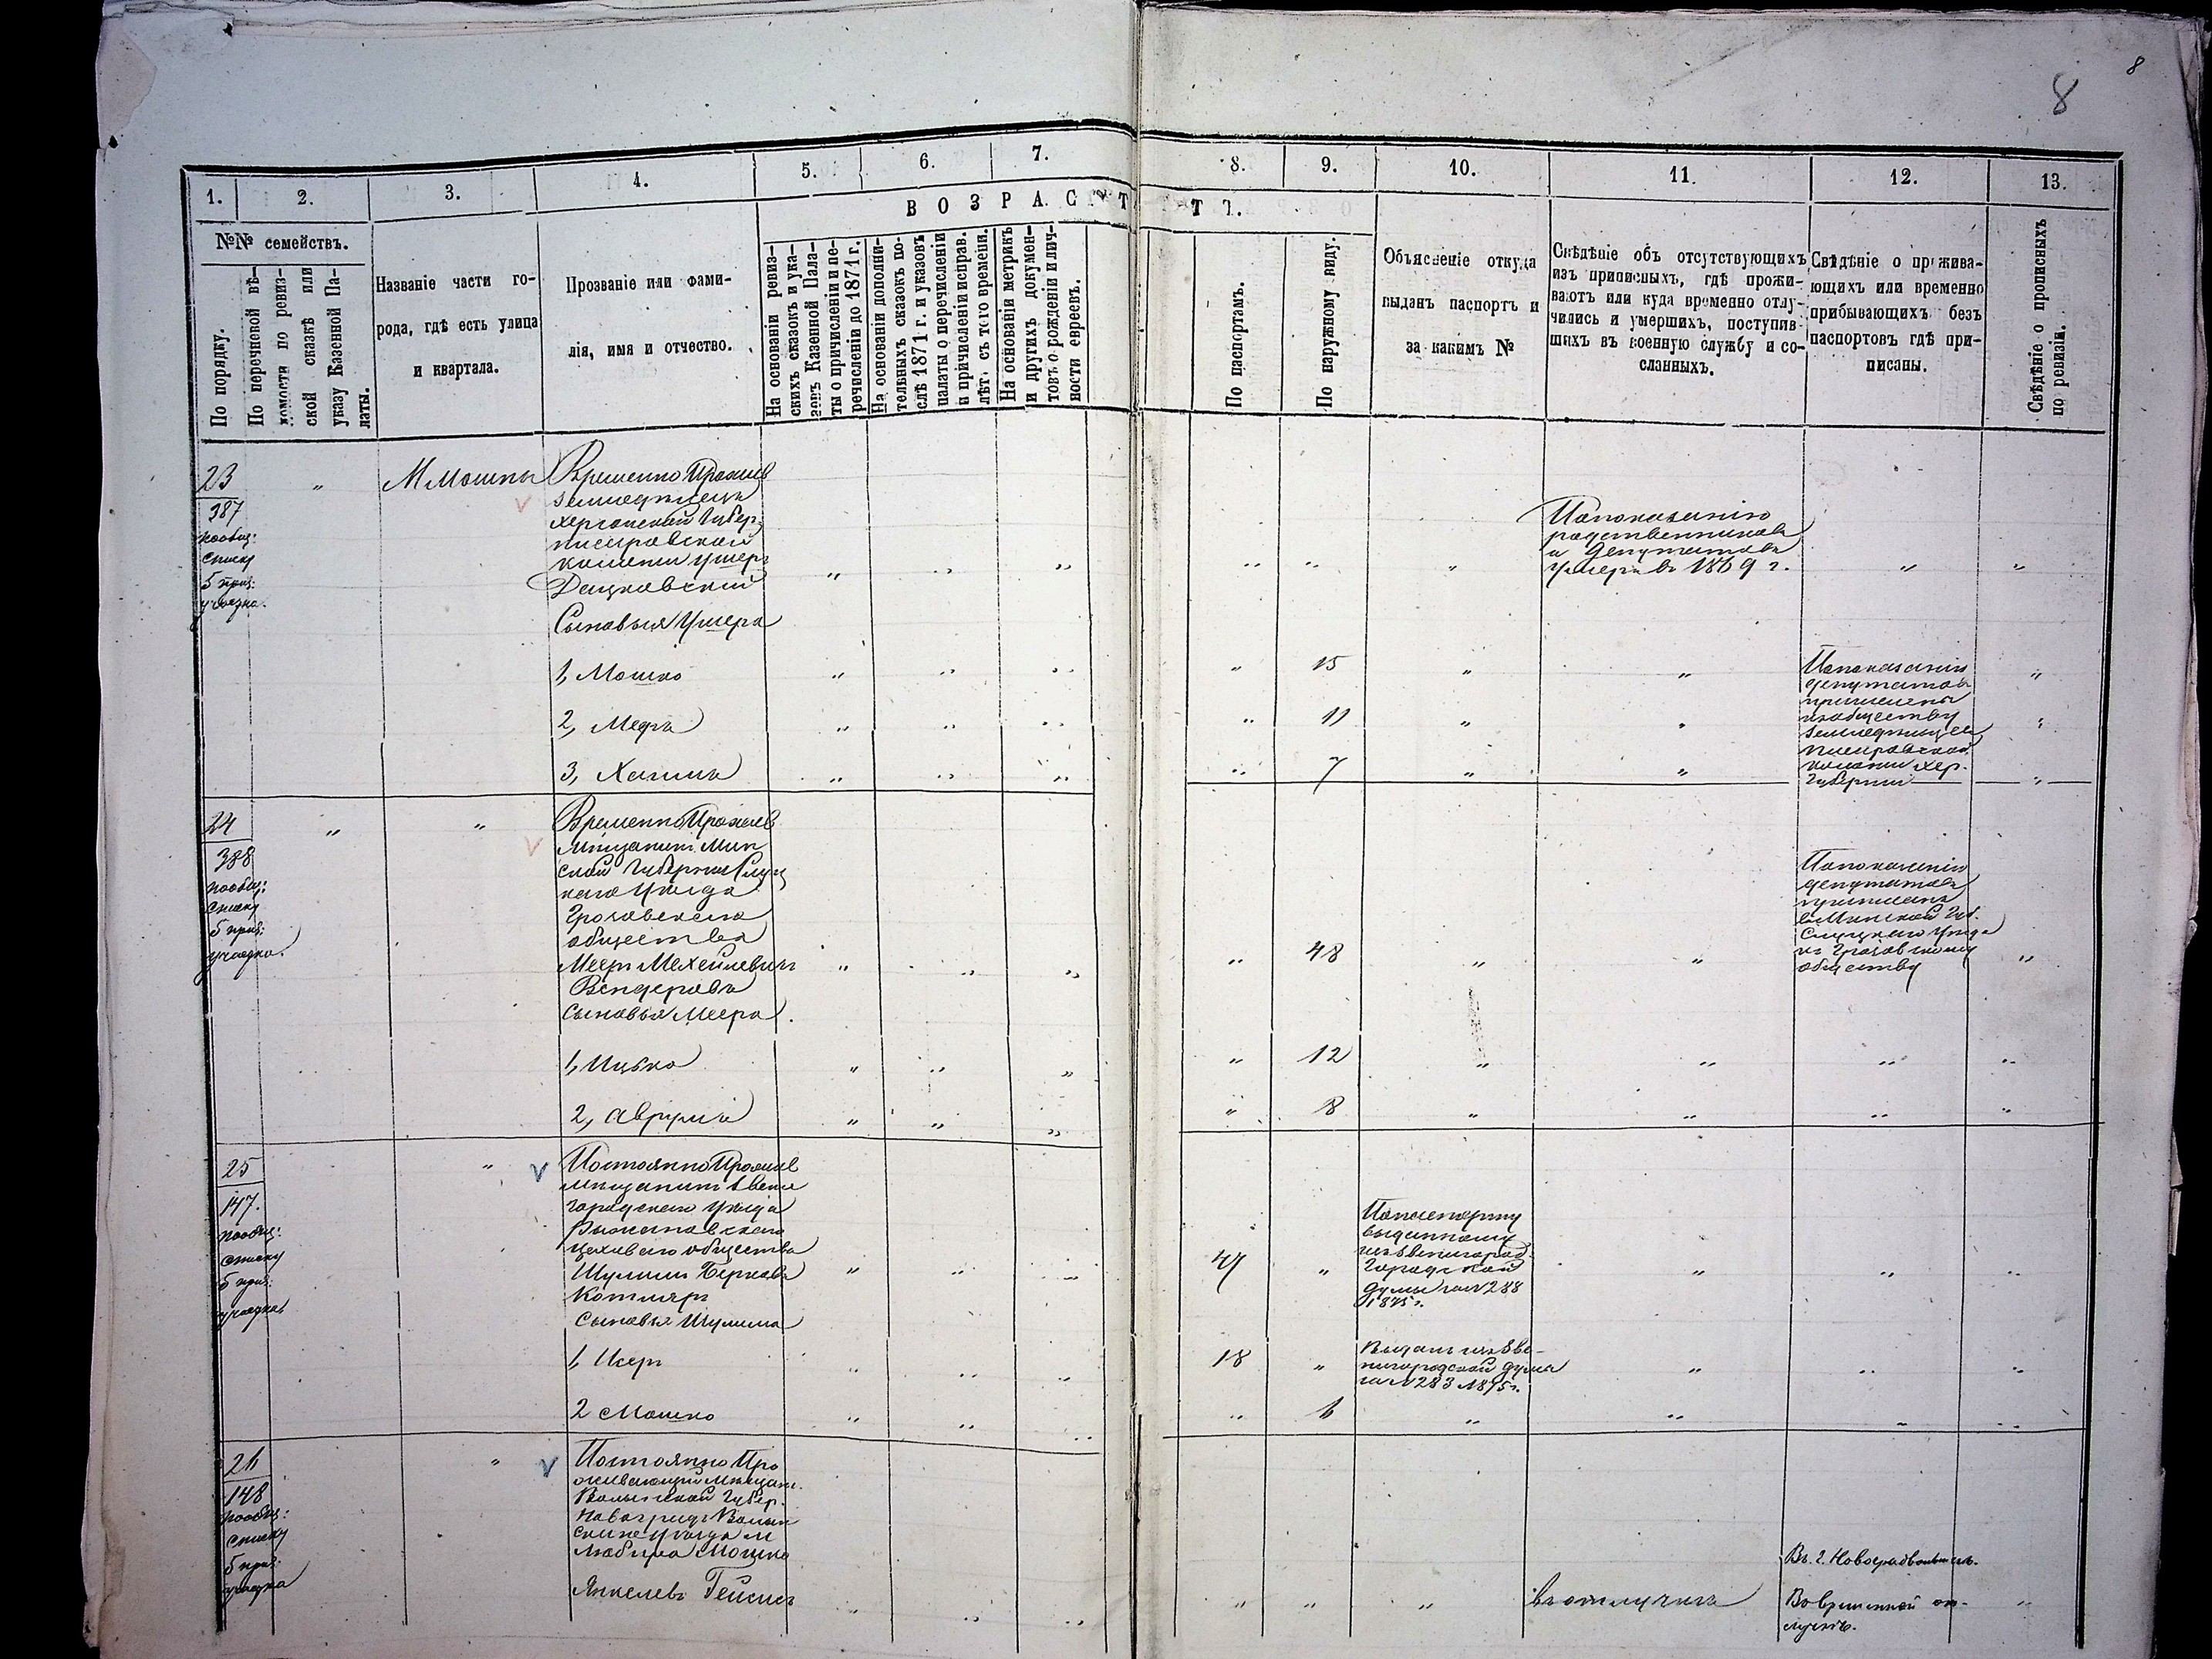 8
8
1.
2.
3.
4.
5.
6.
7.
8.
9.
10.
11.
12.
13.
№№ семействъ.
По порядку.
По перечневой вѣ-
домости по ревиз-
ской сказкѣ или
указу Казенной Па-
латы.
Названіе части го-
рода, гдѣ есть улица
и квартала.
Прозваніе или фами-
лія, имя и отчество.
ВОЗРАСТ
ТЪ.
На основаніи ревиз-
скихъ сказокъ и ука-
зовъ Казенной Пала-
ты о причисленіи и пе-
речисленіи до 1871 г.
На основаніи дополни-
тельныхъ сказокъ по-
слѣ 1871 г. и указовъ
палаты о перечисленіи
и причисленіи исправ.
лѣтъ съ того времени.
На основаніи метрикъ
и другихъ докумен-
товъ о рожденіи и лич-
ности евреевъ.
По паспортамъ.
По наружному виду.
Объясненіе откуда
выданъ паспортъ и
за какимъ №
Свѣдѣніе объ отсутствующихъ
изъ приписныхъ, гдѣ прожи-
ваютъ или куда временно отлу-
чились и умершихъ, поступив-
шихъ въ военную службу и со-
сланныхъ.
Свѣдѣніе о прожива-
ющихъ или временно
прибывающихъ безъ
паспортовъ гдѣ при-
писаны.
Свѣдѣніе о прописныхъ
по ревизіи.
23
387
пообщ:
списку
5 приз:
участка.
" М Мошны
Временно Прожив
земледѣлецъ
херсонской Губер.
колоніи Ушеръ
Дацковскій
Попоказанію
родственниковъ
и депутатовъ
умеръ въ 1869 г.
Сыновья Ушера
1, Мошко " " " " 15 " "
2, Меръ " " " " 11 " "
3, Хаимъ " " " " 7 " "
Попоказанію
депутатовъ
приписаны
къ обществу
земледѣльцевъ
колоніи Хер.
Губерніи
24
388
пообщ:
списку
5 приз:
участка.
" "
Временно Прожив
Мѣщанинъ Мин
ской Губерніи Слуц
каго Уѣзда
Грозовскаго
общества
Мееръ Мехелевичъ " " " " 48 " "
Вендеровъ
Сыновья Меера.
Попоказанію
депутатовъ
приписанъ
въ Минской Губ.
Слуцкаго Уѣзда
къ Грозовскому
обществу
1, Ицько " " " " 12 " " " "
2, Аврумъ " " " " 8 " " " "
25
147.
пообщ:
списку
5 приз:
участка
"
Постоянно Прожив
мѣщанинъ Звени
городскаго Уѣзда
Рыжановскаго
цеховаго общества
Шулимъ Берковъ
Котляръ
Сыновья Шулима
47
Попаспорту
выданному
изъ Звенигород.
Городской
Думы за №288
1875 г.
1, Исеръ " " " 18 "
Выданъ изъ Зве-
нигородской думы
за №283 1875 г.
2 Мошко
26
148
пообщ:
списку
5 приз:
участка
"
Постоянно Про
живающій Мѣщан.
Волынской Губер.
Новоградъ Волын
скаго уѣзда м
Любара Мошко
Янкелевъ Гейсикъ
въ отлучкѣ
Въ г. Новоградволынск.
Во временной от-
лучкѣ.